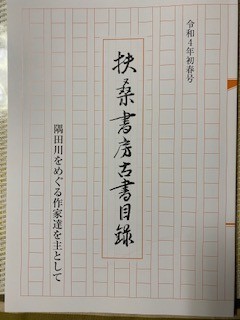 令和4年初春号
扶桑書房古書目録
隅田川をめぐる作家達を主として